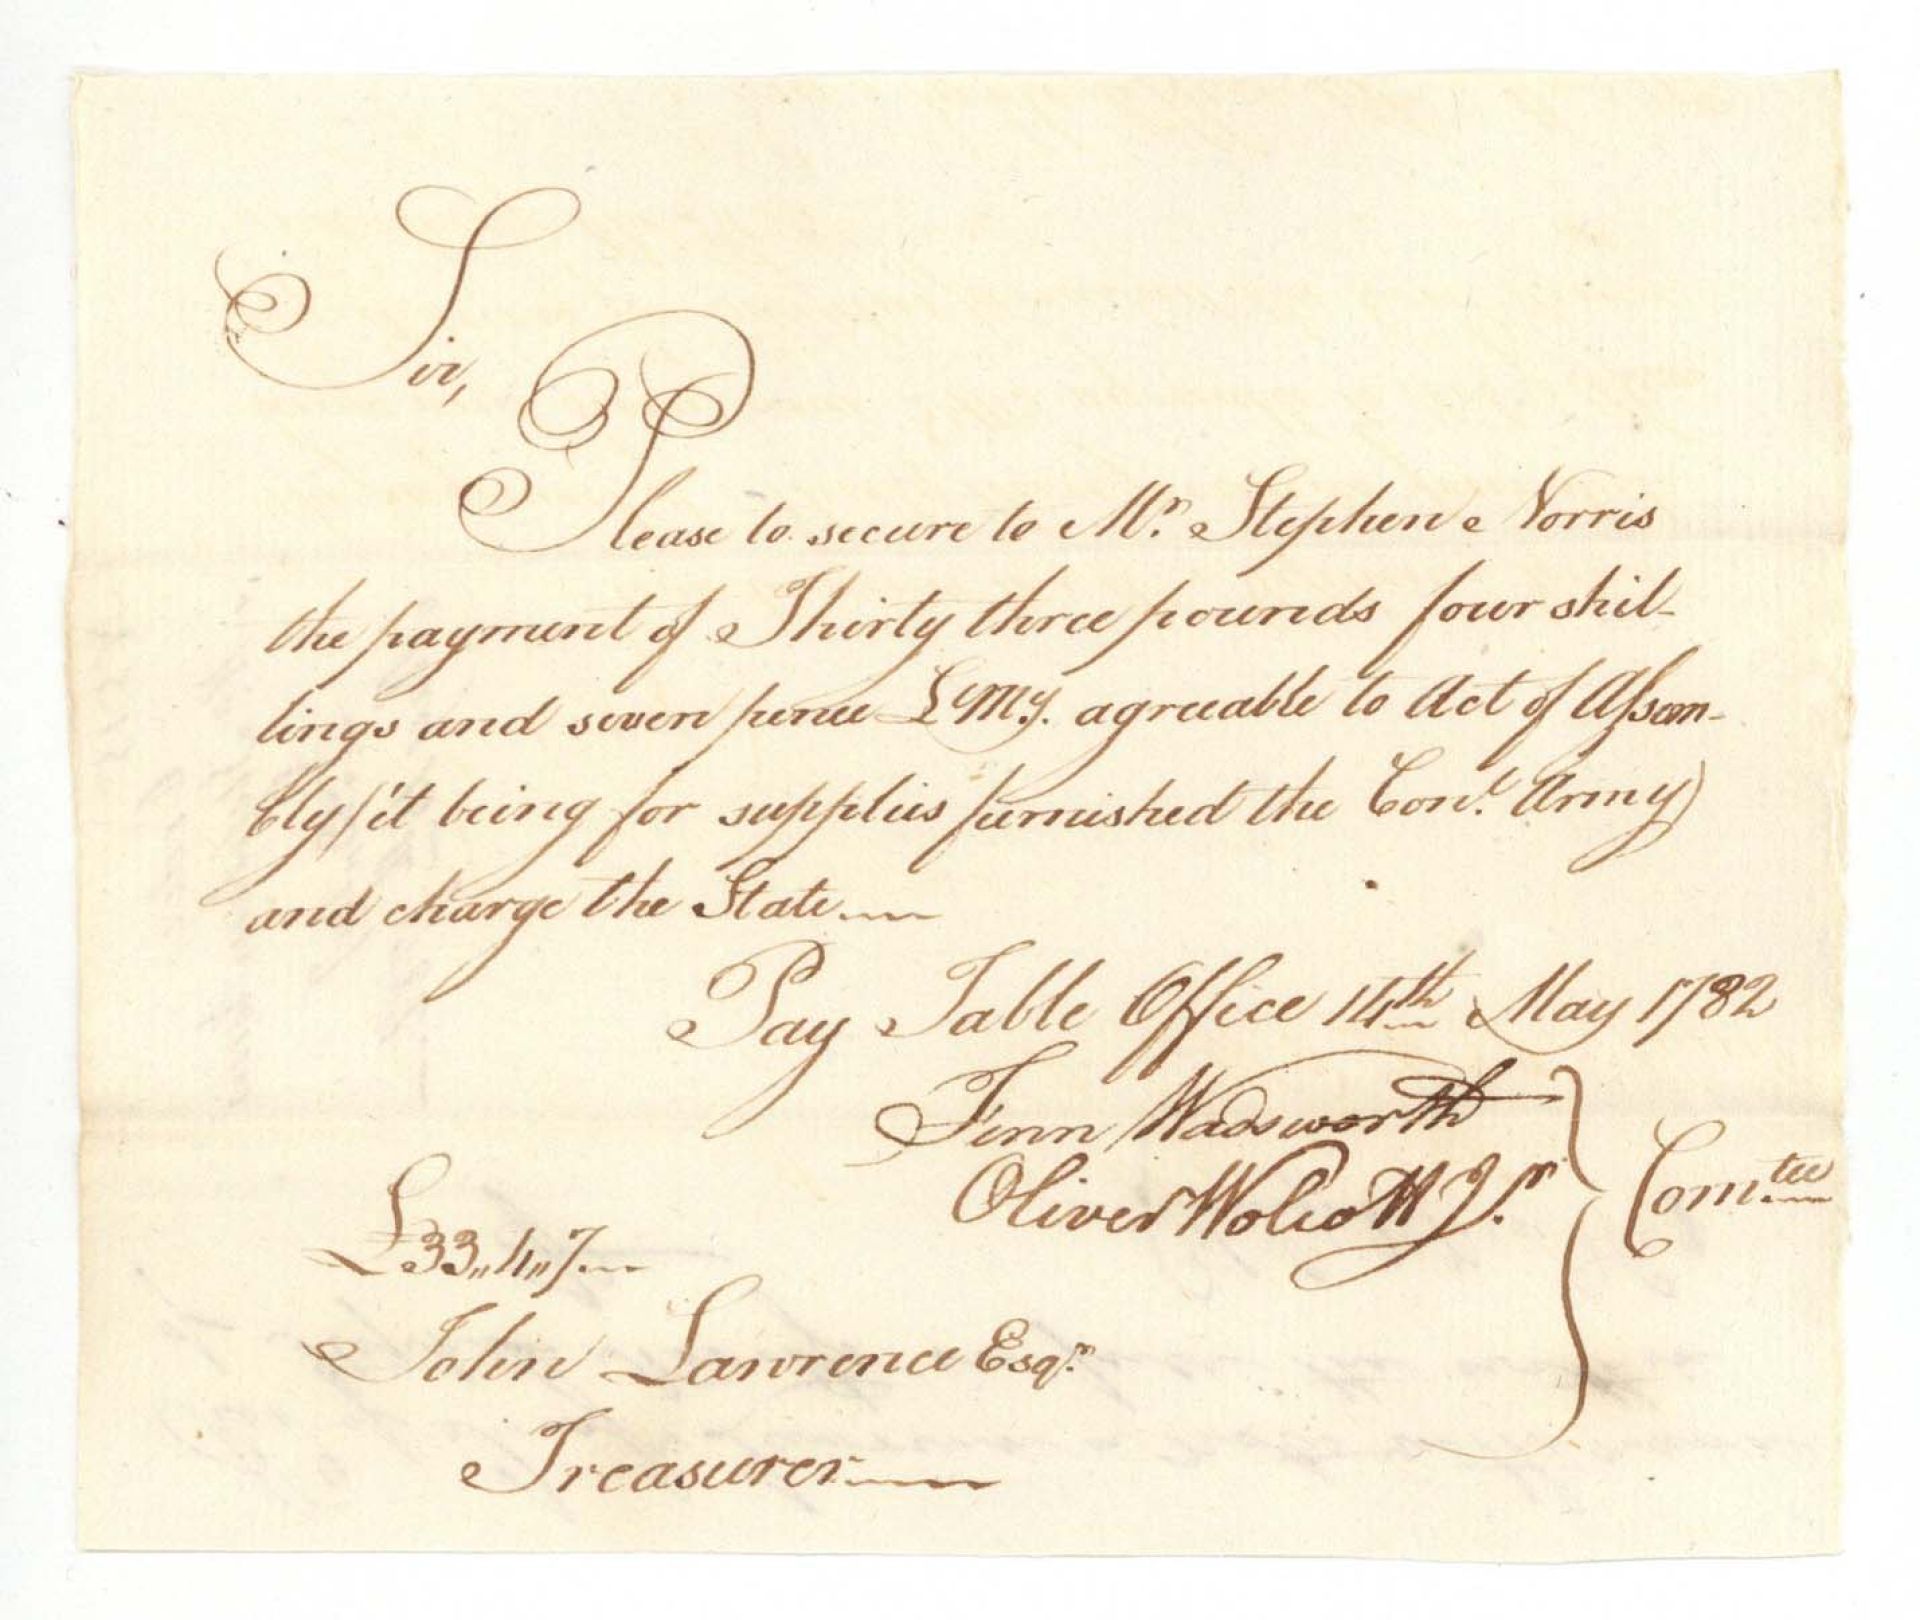 Sir,
Please to secure to Mr. Stephen Norris
the payment of Thirty three pounds four shil-
lings and seven pence LMy. agreeable to Act of Assem-
bly (it being for supplies furnished the Conl. Army)
and charge the State
Pay Table Office 14th May 1782
Fenn Wadsworth
Oliver Wolcott Jr.
Comtee
£33,,4,,7
John Lawrence Esqr.
Treasurer